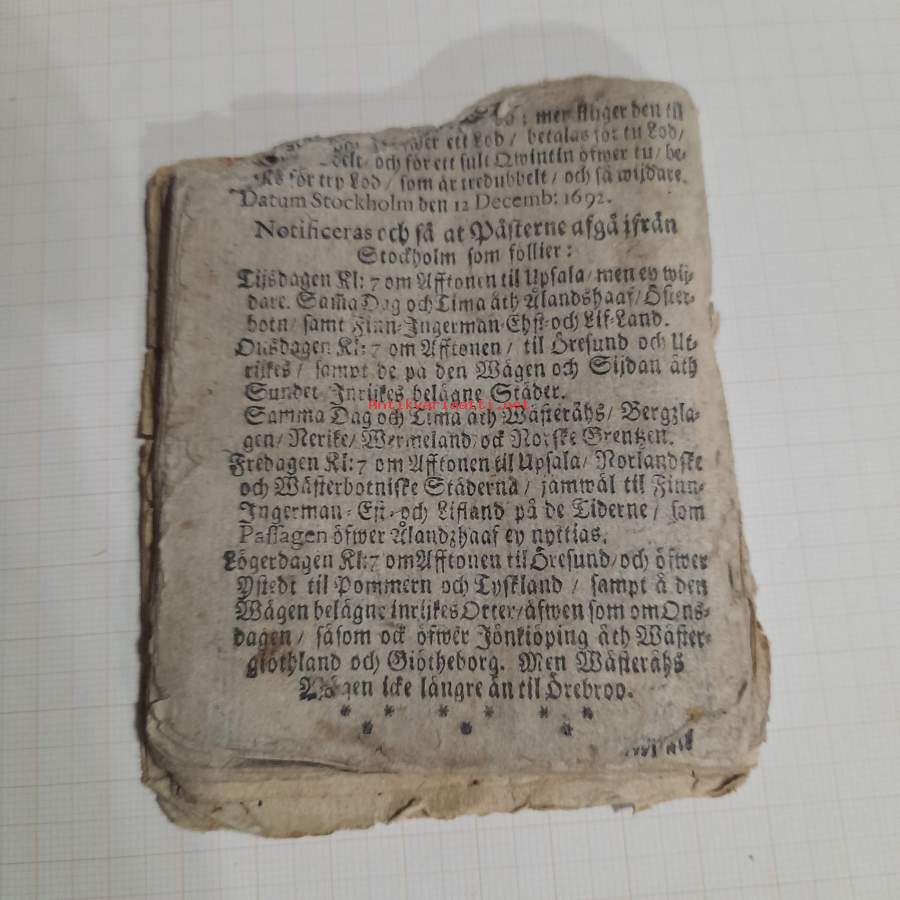 mer stiger den til
ett Lod / betalas för tu Lod /
och för ett fult Qwintin öfwer tu / be-
för try Lod / som är tredubbelt / och så wijdare.
Datum Stockholm den 12 Decemb: 1692.
Notificeras och så at Påsterne afgå ifrån
Stockholm som föllier:
Tijsdagen Kl: 7 om Afftonen til Upsala / men ey wij-
dare. Sam̃a Dag och Tima åth Ålandshaaf / Öster-
botn / samt Finn-Ingerman-Ehst-och Lif-Land.
Onsdagen Kl: 7 om Afftonen / til Öresund och Ut-
rijkes / sampt de på den Wägen och Sijdan åth
Sundet Inrijkes belägne Städer.
Samma Dag och Tima åth Wästeråhs / Bergzla-
gen / Nerike / Wermeland ock Norske Grentzen.
Fredagen Kl: 7 om Afftonen til Upsala / Norlandske
och Wästerbotniske Städerna / jämwäl til Finn-
Ingerman-Est-och Lifland på de Tiderne / som
Passagen öfwer Ålandzhaaf ey nyttias.
Lögerdagen Kl: 7 om Afftonen til Öresund / och öfwer
Ystedt til Pommern och Tyskland / sampt å den
Wägen belägne inrijkes Orter / äfwen som om Ons-
dagen / såsom ock öfwer Jönkiöping åth Wäster-
giöthland och Giötheborg. Men Wästeråhs
Wägen icke längre än til Örebroo.
* * * * * *
* * *
Antikvariaatti.net